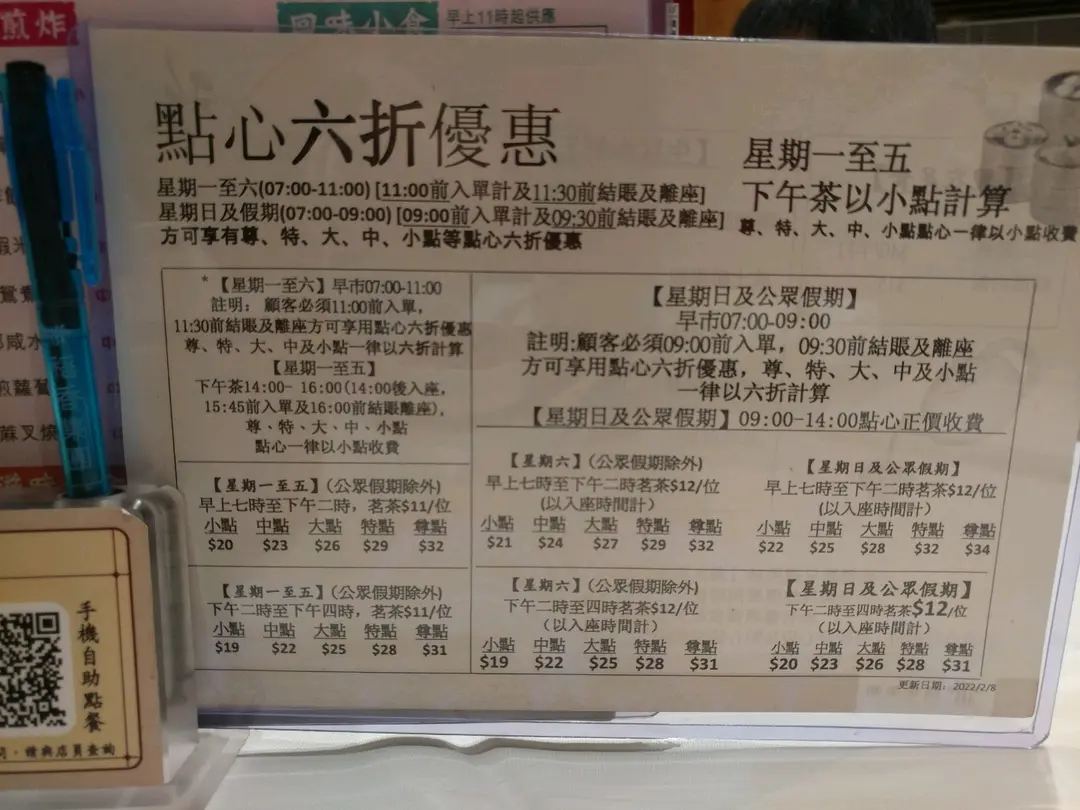 煎炸
風味小食
早上11時起供應
點心六折優惠
星期一至六(07:00-11:00) [11:00前入單計及11:30前結賬及離座]
星期日及假期(07:00-09:00) [09:00前入單計及09:30前結賬及離座]
方可享有尊、特、大、中、小點等點心六折優惠
星期一至五
下午茶以小點計算
尊、特、大、中、小點點心一律以小點收費
*【星期一至六】早市07:00-11:00
註明： 顧客必須11:00前入單，
11:30前結賬及離座方可享用點心六折優惠
尊、特、大、中及小點一律以六折計算
【星期一至五】
下午茶14:00- 16:00(14:00後入座，
15:45前入單及16:00前結賬離座)，
尊、特、大、中、小點
點心一律以小點收費
【星期日及公眾假期】
早市07:00-09:00
註明:顧客必須09:00前入單，09:30前結賬及離座
方可享用點心六折優惠，尊、特、大、中及小點
一律以六折計算
【星期日及公眾假期】09:00-14:00點心正價收費
【星期一至五】(公眾假期除外)
早上七時至下午二時，茗茶$11/位
小點 中點 大點 特點 尊點
$20 $23 $26 $29 $32
【星期六】(公眾假期除外)
早上七時至下午二時茗茶$12/位
(以入座時間計)
小點 中點 大點 特點 尊點
$21 $24 $27 $29 $32
【星期日及公眾假期】
早上七時至下午二時茗茶$12/位
(以入座時間計)
小點 中點 大點 特點 尊點
$22 $25 $28 $32 $34
【星期一至五】(公眾假期除外)
下午二時至下午四時，茗茶$11/位
小點 中點 大點 特點 尊點
$19 $22 $25 $28 $31
【星期六】(公眾假期除外)
下午二時至四時茗茶$12/位
(以入座時間計)
小點 中點 大點 特點 尊點
$19 $22 $25 $28 $31
【星期日及公眾假期】
下午二時至四時茗茶$12/位
(以入座時間計)
小點 中點 大點 特點 尊點
$20 $23 $26 $28 $31
更新日期：2022/2/8
手機自助點餐
請與店員查詢